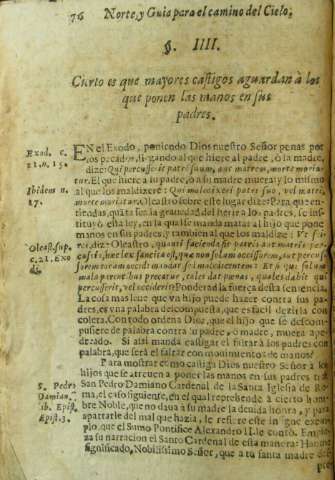 76 Norte, y Guia para el camino del Cielo,
§. IIII.
Cierto es que mayores castigos aguardan à los
que ponen las manos en sus
padres.
Exod. c.
21. n. 15.
EN el Exodo, poniendo Dios nuestro Señor penas por
los pecados, llegando al que hiere al padre, ò la madre,
dize: Qui percusserit patrem suum, aut matrem, morte moria-
tur. El que hiere a su padre, ò a su madre muera; y lo mismo
Ibidem n.
17.
al que los maldixere: Qui maledixerit patri suo, vel matri,
morte moriatur. Oleastro sobre este lugar dize: Para que en-
tiendas, quanta sea la gravedad del herir a los padres, se insti-
tuyò esta ley, en la que le manda matar al hijo que pone
manos en sus padres; y tambien al que los maldize:
Oleast. sup.
c. 21. Exo
di.
dize Oleastro, quanti facienda sit patris aut matris per-
cussio, hac lex sancita est, que non solum occisorem, aut percus-
sorem
malo parentibus precatur,
percusserit, vel occiderit? Ponderad la fuerça desta sentencia,
La cosa mas leve que vn hijo puede hazer contra sus pa-
dres, es vna palabra descompuesta, que es facil dezirla con
colera. Con todo ordena Dios, que el hijo que se descom-
pusiere de palabra contra su padre, ò madre, muera ape-
dreado. Si assi manda castigar el faltar à los padres con
palabra, que serà el faltar con movimientos de manos?
Para mostrar como castiga Dios nuestro Señor à los
hijos que se atreven à poner las manos en sus padres trae
S. Pedro
Damian.
lib. Epist.
Epist. 3.
San Pedro Damiano Cardenal de la Santa Iglesia de Ro-
ma, el caso siguiente, en el qual reprehende à cierto hom-
bre Noble, que no dava a su madre la devida honra, y para
apartarle del mal que hazia, le refiere este insigne exem-
plo, que el Sumo Pontifice Alexandro II. le contò. Empie-
za su narracion el Santo Cardenal de esta manera: Hanme
significado, Nobilissimo Señor, que a tu santa madre